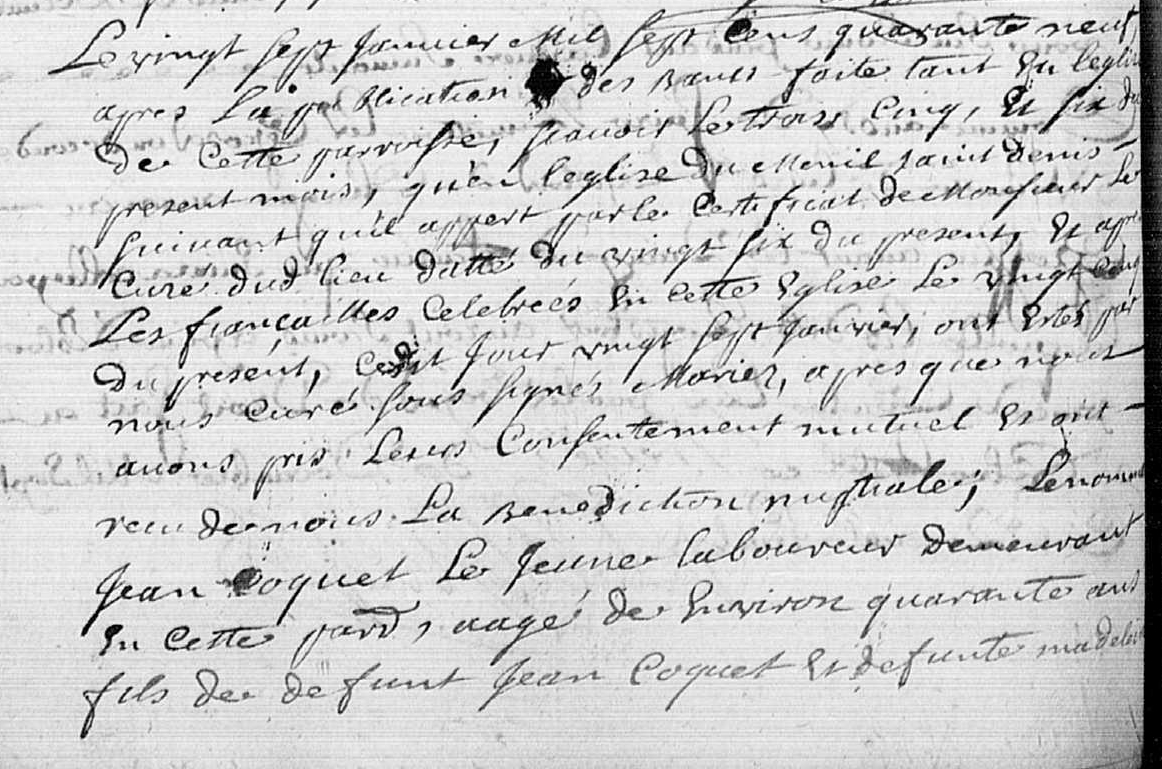 Le vingt sept Janvier Mil sept Cens quarante neuf,
apres La publication des Bancs faite tant En l'eglise
de Cette parroisse, sçavoir Le trois Cinq, Et six du
present mois, qu'en l'eglise du Menil saint denis
suivant qu'il appert par le Certificat de Monsieur Le
Curé dud lieu datté du vingt six du present, Et apres
Les fiançailles Celebreés En cette Eglise Le vingt Cinq
du present, Cedit Jour vingt sept Janvier, ont Estés par
nous Curé sous signés Mariez, apres que nous
avons pris Leurs Consentement mutuel Et ont
recu de nous La Benediction nuptiale, Le nommé
Jean Coquet Le Jeune laboureur Demeurant
En Cette parr, aagé de Environ quarante ans
fils de defunt Jean Coquet Et defunte madeleine